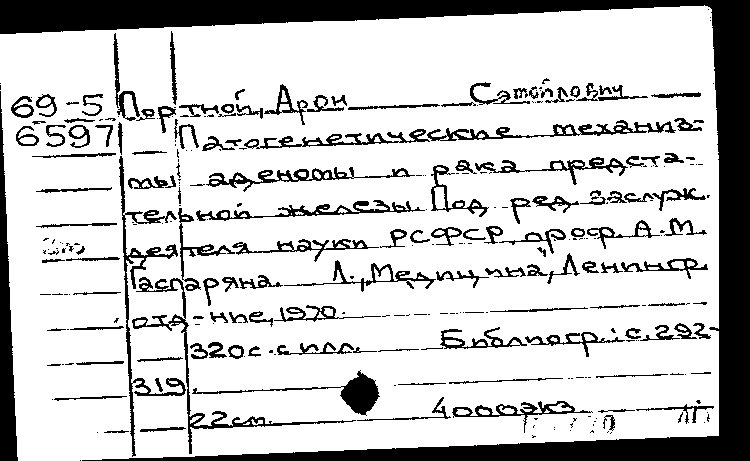 69-5 Портной, Арон Самойлович
6597 Патогенетические механиз-
мы аденомы и рака предста-
тельной железы. Под ред. заслуж.
деятеля науки РСФСР, проф. А.М.
Гаспаряна. Л., „Медицина", Ленингр.
отд-ние, 1970.
320с. с илл. Библиогр.: с. 292-
319.
22см. 4000экз